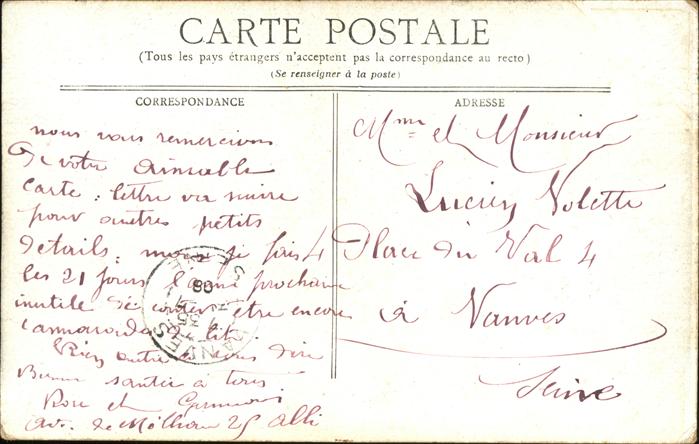 CARTE POSTALE
(Tous les pays étrangers n'acceptent pas la correspondance au recto)
(Se renseigner à la poste)
CORRESPONDANCE
nous vous remercions
de votre aimable
carte : lettre va suivre
pour autres petits
details ; je fais
les 21 jours l'anné prochaine
inutile de être encore
Rien autre vous dire
Bonne santée à tous
Rose et
av. de 25 albi
ADRESSE
Mme et Monsieur
Lucien Nolette
Place du Val 4
à Vanves
Seine
VANVES
SEINE
08